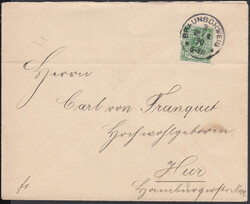 BRAUNSCHWEIG
Herrn
Carl von Franquet
Hochwohlgeboren
Hier
Hamburgerstr.